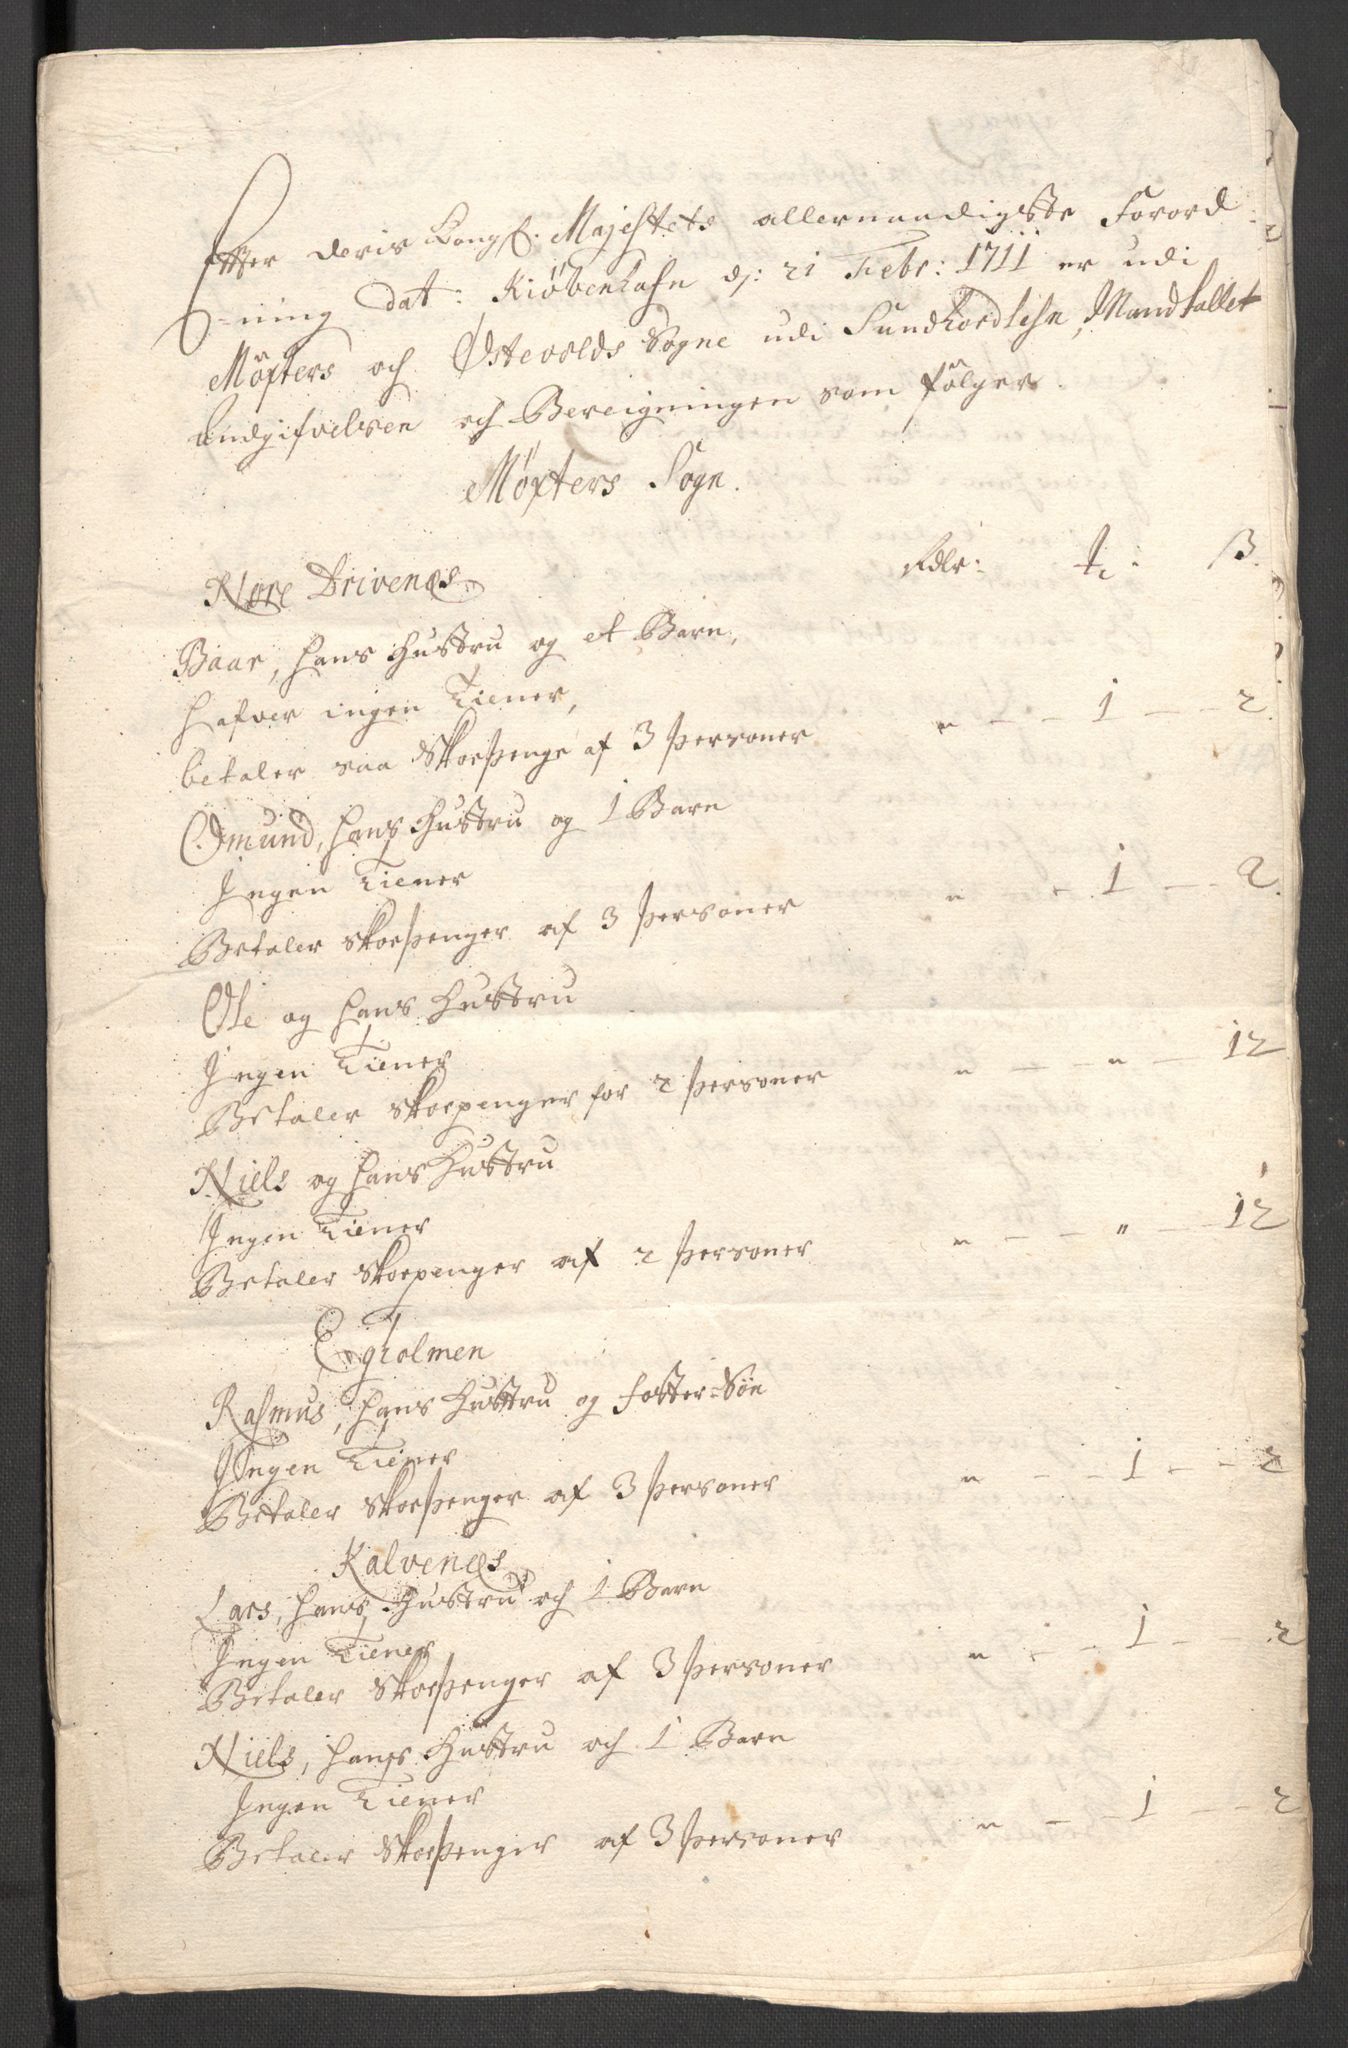 Efter deris Kongl: Majestets allernaadigste Forord-
-ning dat: Kiöbenhafn d: 21 Febr: 1711 er udi
Möxters och Østevolds Sogne udi Sundhordlehn, Mandtallet
Andgifvelsen och Bereigningen som fölger
Möxters Sogn.
Nore Drivenæs. Rdlr: ß.
Baar, hans Hustru og et Barn,
hafver ingen Tiener,
betaler saa Skoepenge af 3 personer " — — 1 — — 2.
Omund, hans Hustru og 1 Barn
Ingen Tiener
Betaler skoepenger af 3 personer " — 1 — — 2.
Ole og hans Hustru
Ingen Tiener
Betaler skoepenger for 2 personer " — — " — 12
Niels og hans Hustru
Ingen Tiener
Betaler skoepenger af 2 personer " — — " — 12
Egholmen
Rasmus, hans Hustru og foster-Søn
Ingen Tiener
Betaler skoepenger af 3 personer " — — 1 — — 2
Kalvenæs
Lars, hans Hustru och 1 Barn
Ingen Tiener
Betaler skoepenger af 3 personer " — — 1 — — 2
Niels, hans Hustru och 1 Barn
Ingen Tiener
Betaler skoepenger af 3 personer " — — 1 — — 2